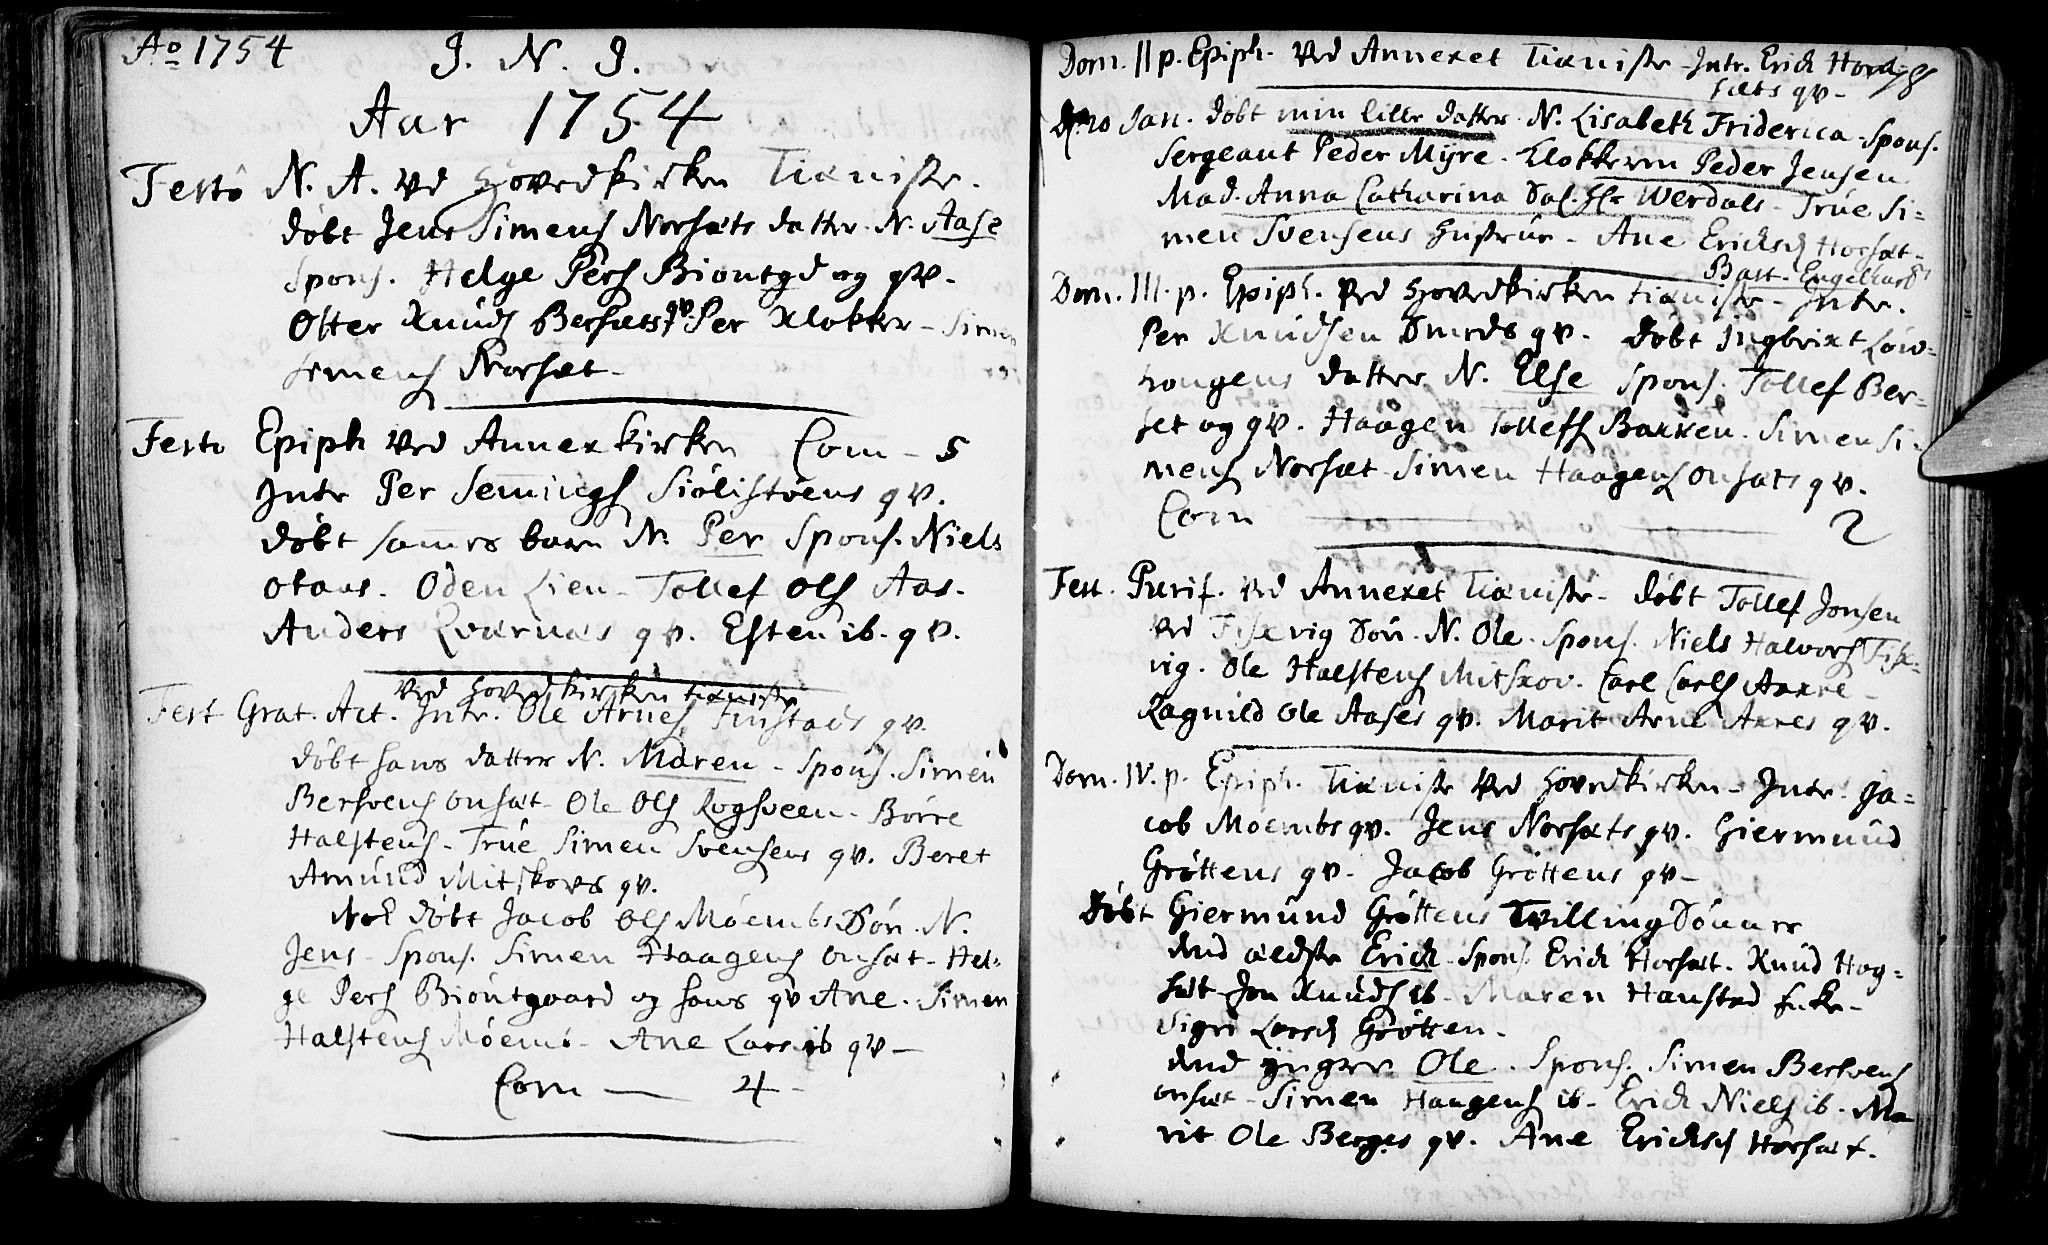 Ao 1754
J. N. J.
Aar 1754
Festo N. A. ved Hovedkirken Tieniste.
døbt Jens Simens Norsæts datter N. Aase
Spons. Helge Pers Biontgd og qv.
Otter Knuds Bersæts qv. Per Klokker - Simen
Simens Norsæt -
Festo Epiph ved Annexkirken Com - 5
Intr Per Semings Siölistvens qv.
døbt sammes barn N. Per Spons. Niels
Otans. Oden Lien - Tollef Ols Aas.
Anders Qværnæs qv. Esten ib. qv.
ved Hovedkirken tieniste
Fest Grat. Act. Intr. Ole Arnes Finstads qv.
døbt hans datter N. Maren - Spons. Simen
Bersvens Onsæt - Ole Ols Rogsveen - Börre
Halstens - True Simen Svensens qv. Beret
Amund Mitskovs qv.
Nok døbt Jacob Ols Möembs Søn N.
Jens - Spons. Simen Haagens Onsæt - Hel-
ge Pers Biontgaard og hans qv Ane. Simen
Halstens Möemb - Ane Lars ib qv -
Com — 4 -
Dom. II p. Epiph. ved Annexet Tieniste - Intr. Erich Hor
sæts qv - 8
D. 20 Jan. døbt min lille datter N. Lisabeth Friderica - Spons.
Sergeant Peder Myre. Klokkeren Peder Jensen
Mad. Anna Catharina Sal. Hr Werdals - True Si-
men Svensens Hustrue - Ane Ericksd Horsæt -
Bast. Engelhard
Dom. III. p. Epiph. ved Hovedkirken tieniste - Intr.
Per Knudsen Smeds qv. døbt Ingbrixt Löv-
hougens datter N. Else Spons. Tollef Ber-
set og qv. Haagen Tollefs Bakken. Simen Si-
mens Norsæt - Simen Haagens Onsæts qv.
Com — 2
Fest. Purif. ved Annexet Tieniste - døbt Tollef Jonsen
ved Fiskvig Søn N. Ole. Spons. Niels Halvors Fisk-
vig. Ole Halstens Mitskov. Carl Carls Aakre -
Ragnild Ole Aases qv. Marit Arne Akres qv.
Dom. IV. p. Epiph. Tieniste ved Hovedkirken - Intr. Ja-
cob Moembs qv. Jens Norsæts qv. Giermund
Gröttens qv. Jacob Gröttens qv -
Döbt Giermund Gröttens Tvilling Sönner
dend ældste Erich - Spons. Erich Horsæt. Knud Hog-
sæt - Jon Knuds ib - Maren Hansted Enke -
Sigri Larsd Grötten -
dend yngre Ole. Spons. Simen Bersvens
Onsæt - Simen Haagens ib - Erich Niels ib. Ma
rit Ole Berges qv. Ane Ericksd Horsæt.